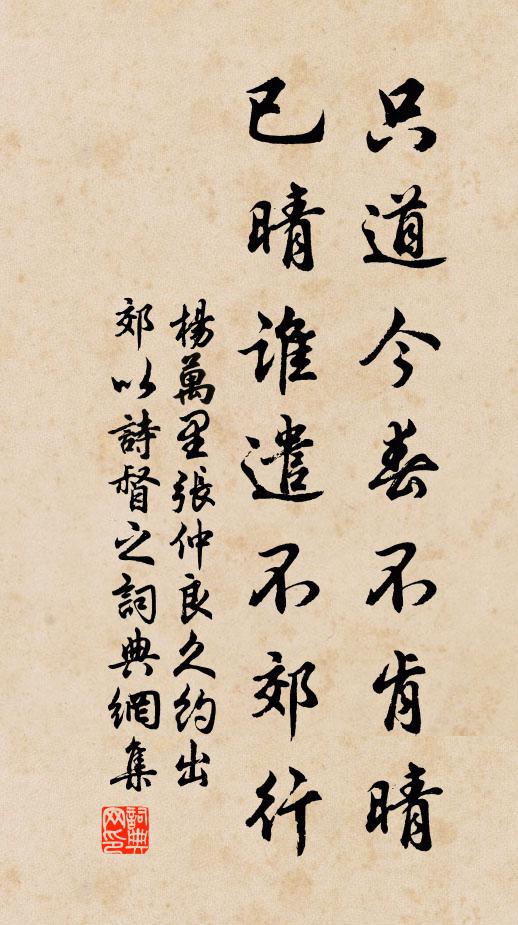 只道今春不肯晴
已晴誰遣不郊行
楊萬里張仲良久約出
郊以詩督之詞典網集
詞典网印